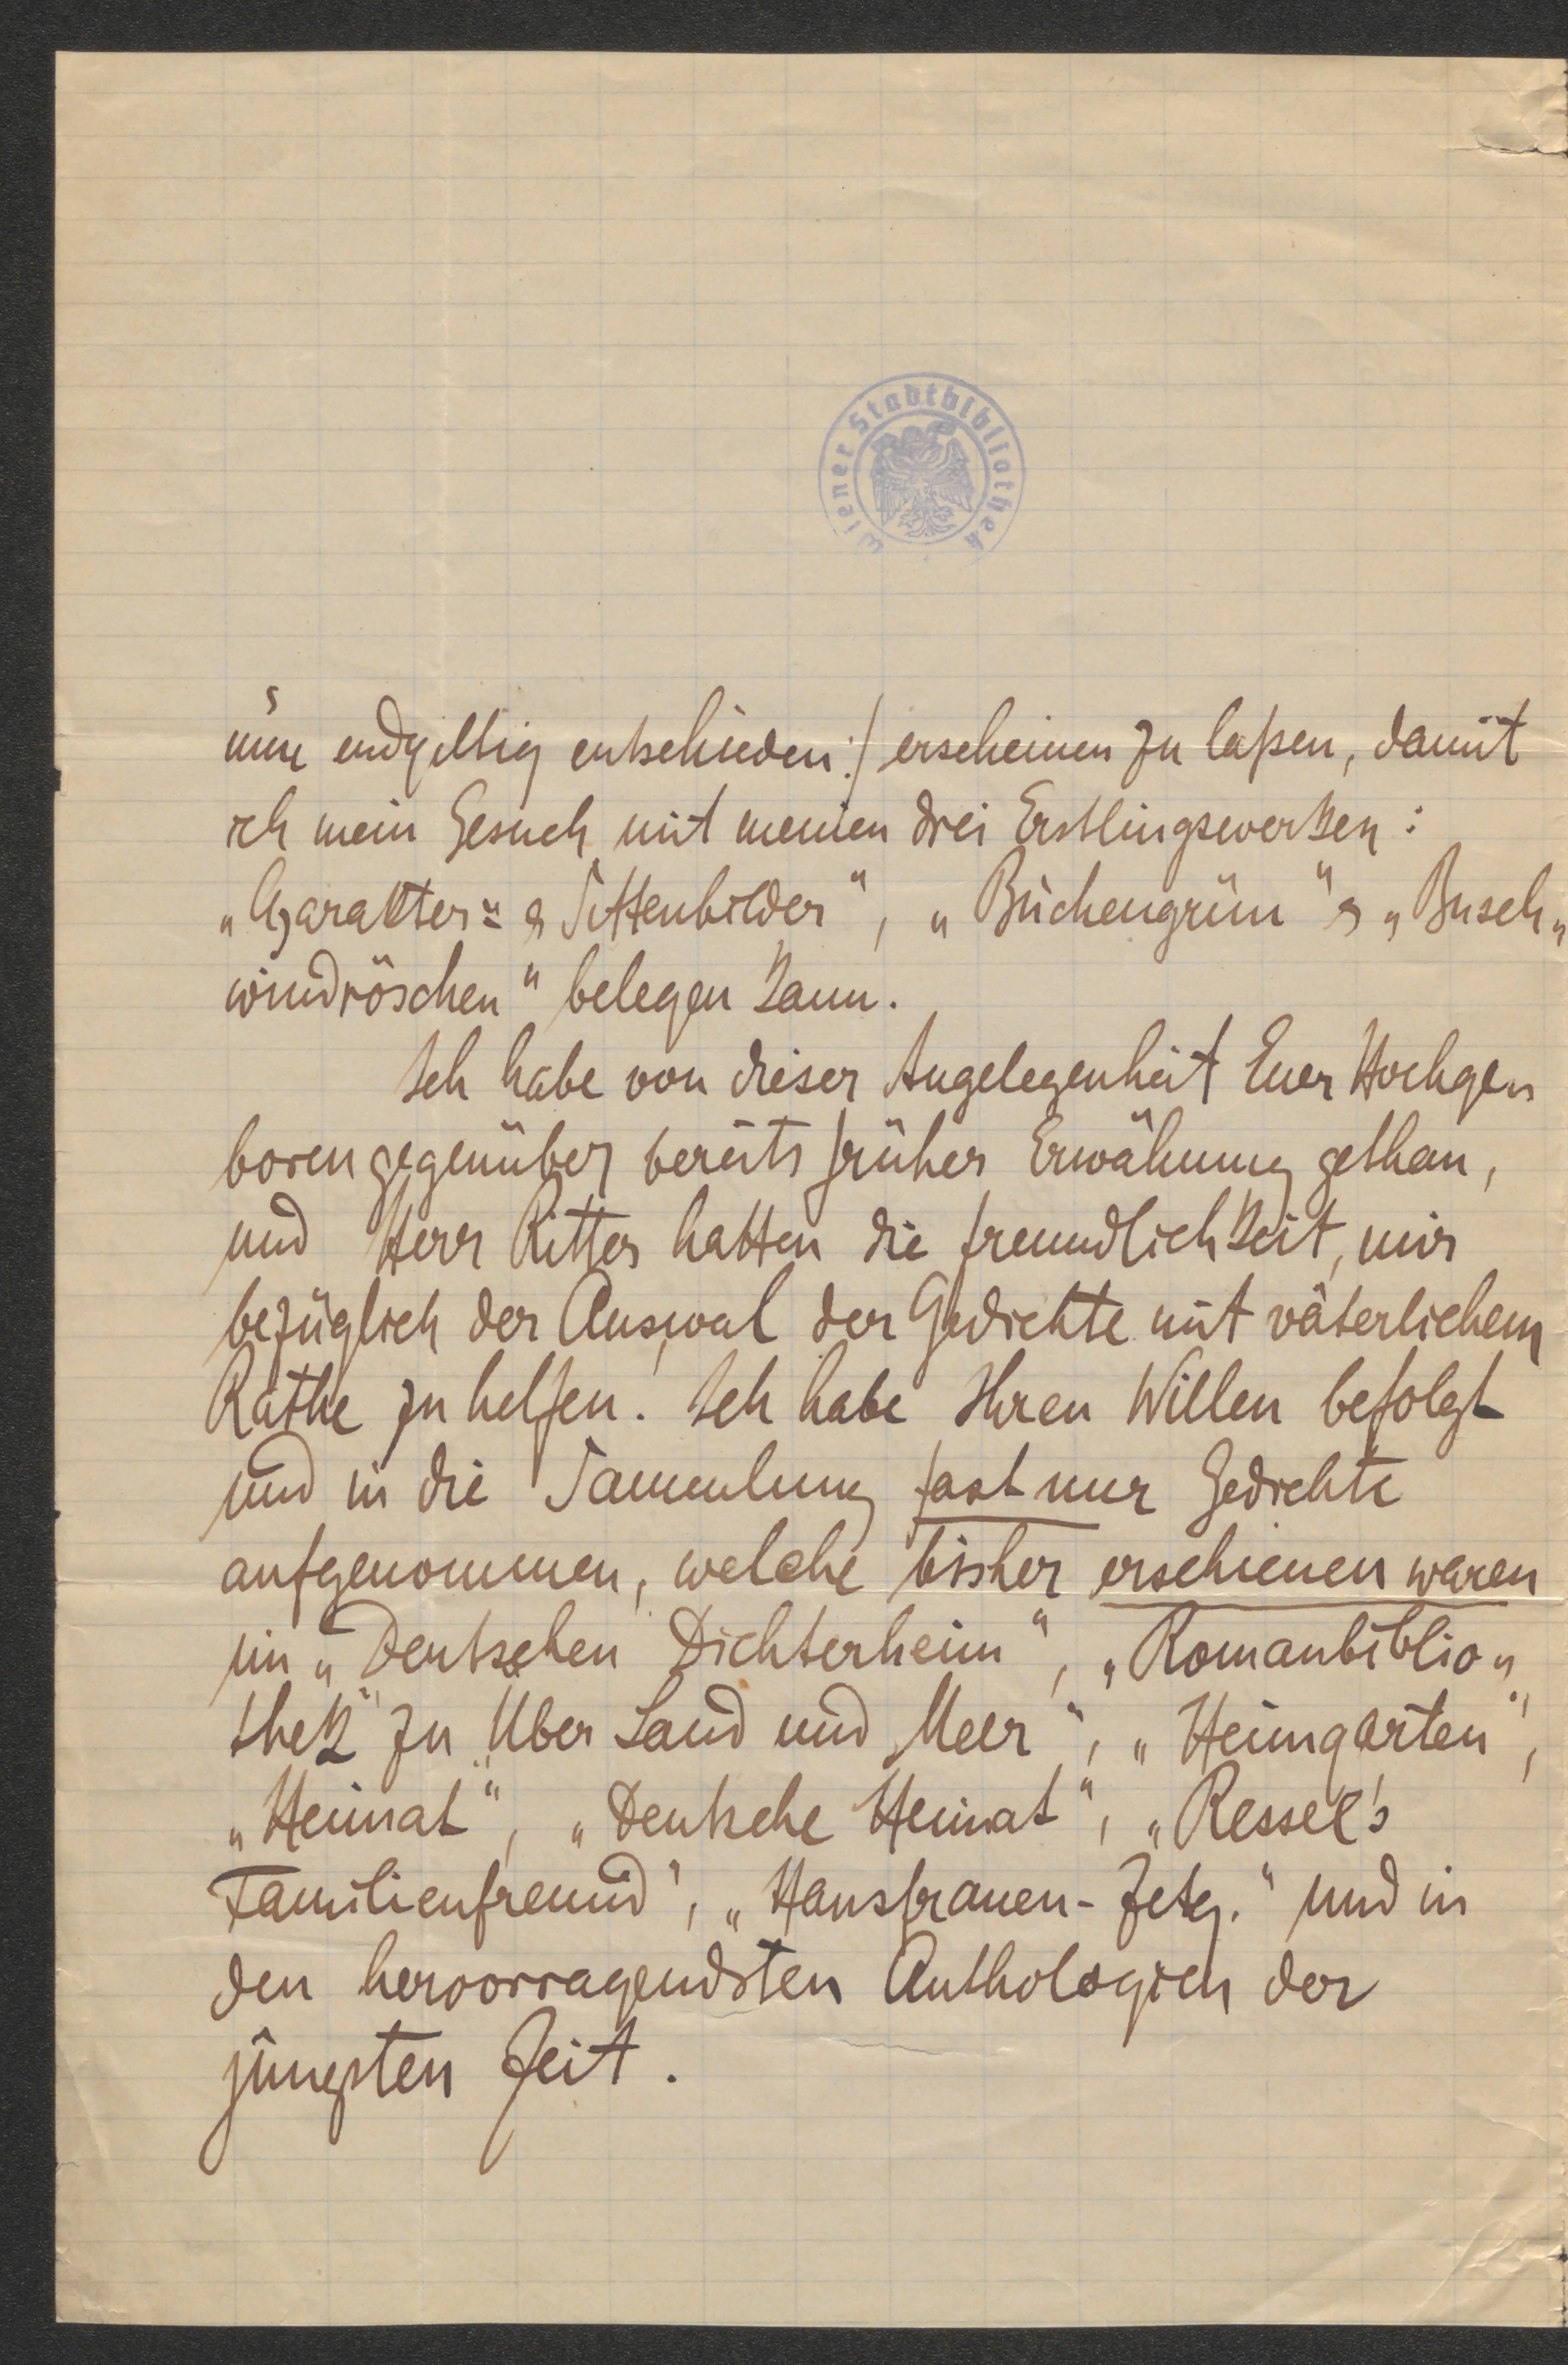 Wiener Stadtbibliothek
nun endgiltig entschieden :/ erscheinen zu laßen, damit
ich mein Gesuch mit meinen drei Erstlingswerken:
„Charakter= & Sittenbilder“, „Buchengrün“ & „Busch„
windröschen“ belegen kann.
Ich habe von dieser Angelegenheit Euer Hochge„
boren gegenüber bereits früher Erwähnung gethan,
und Herr Ritter hatten die Freundlichkeit, mir
bezüglich der Auswal der Gedichte mit väterlichem
Rathe zu helfen. Ich habe Ihren Willen befolgt
und in die Sammlung fast nur Gedichte
aufgenommen, welche bisher erschienen waren
im „Deutschen Dichterheim“, „Romanbiblio„
thek“ zu „Über Land und Meer“, „Heimgarten“,
„Heimat“, „Deutsche Heimat“, „Ressel's
Familienfreund“, „Hausfrauen-Zetg.“ und in
den hervorragendsten Anthologien der
jüngsten Zeit.